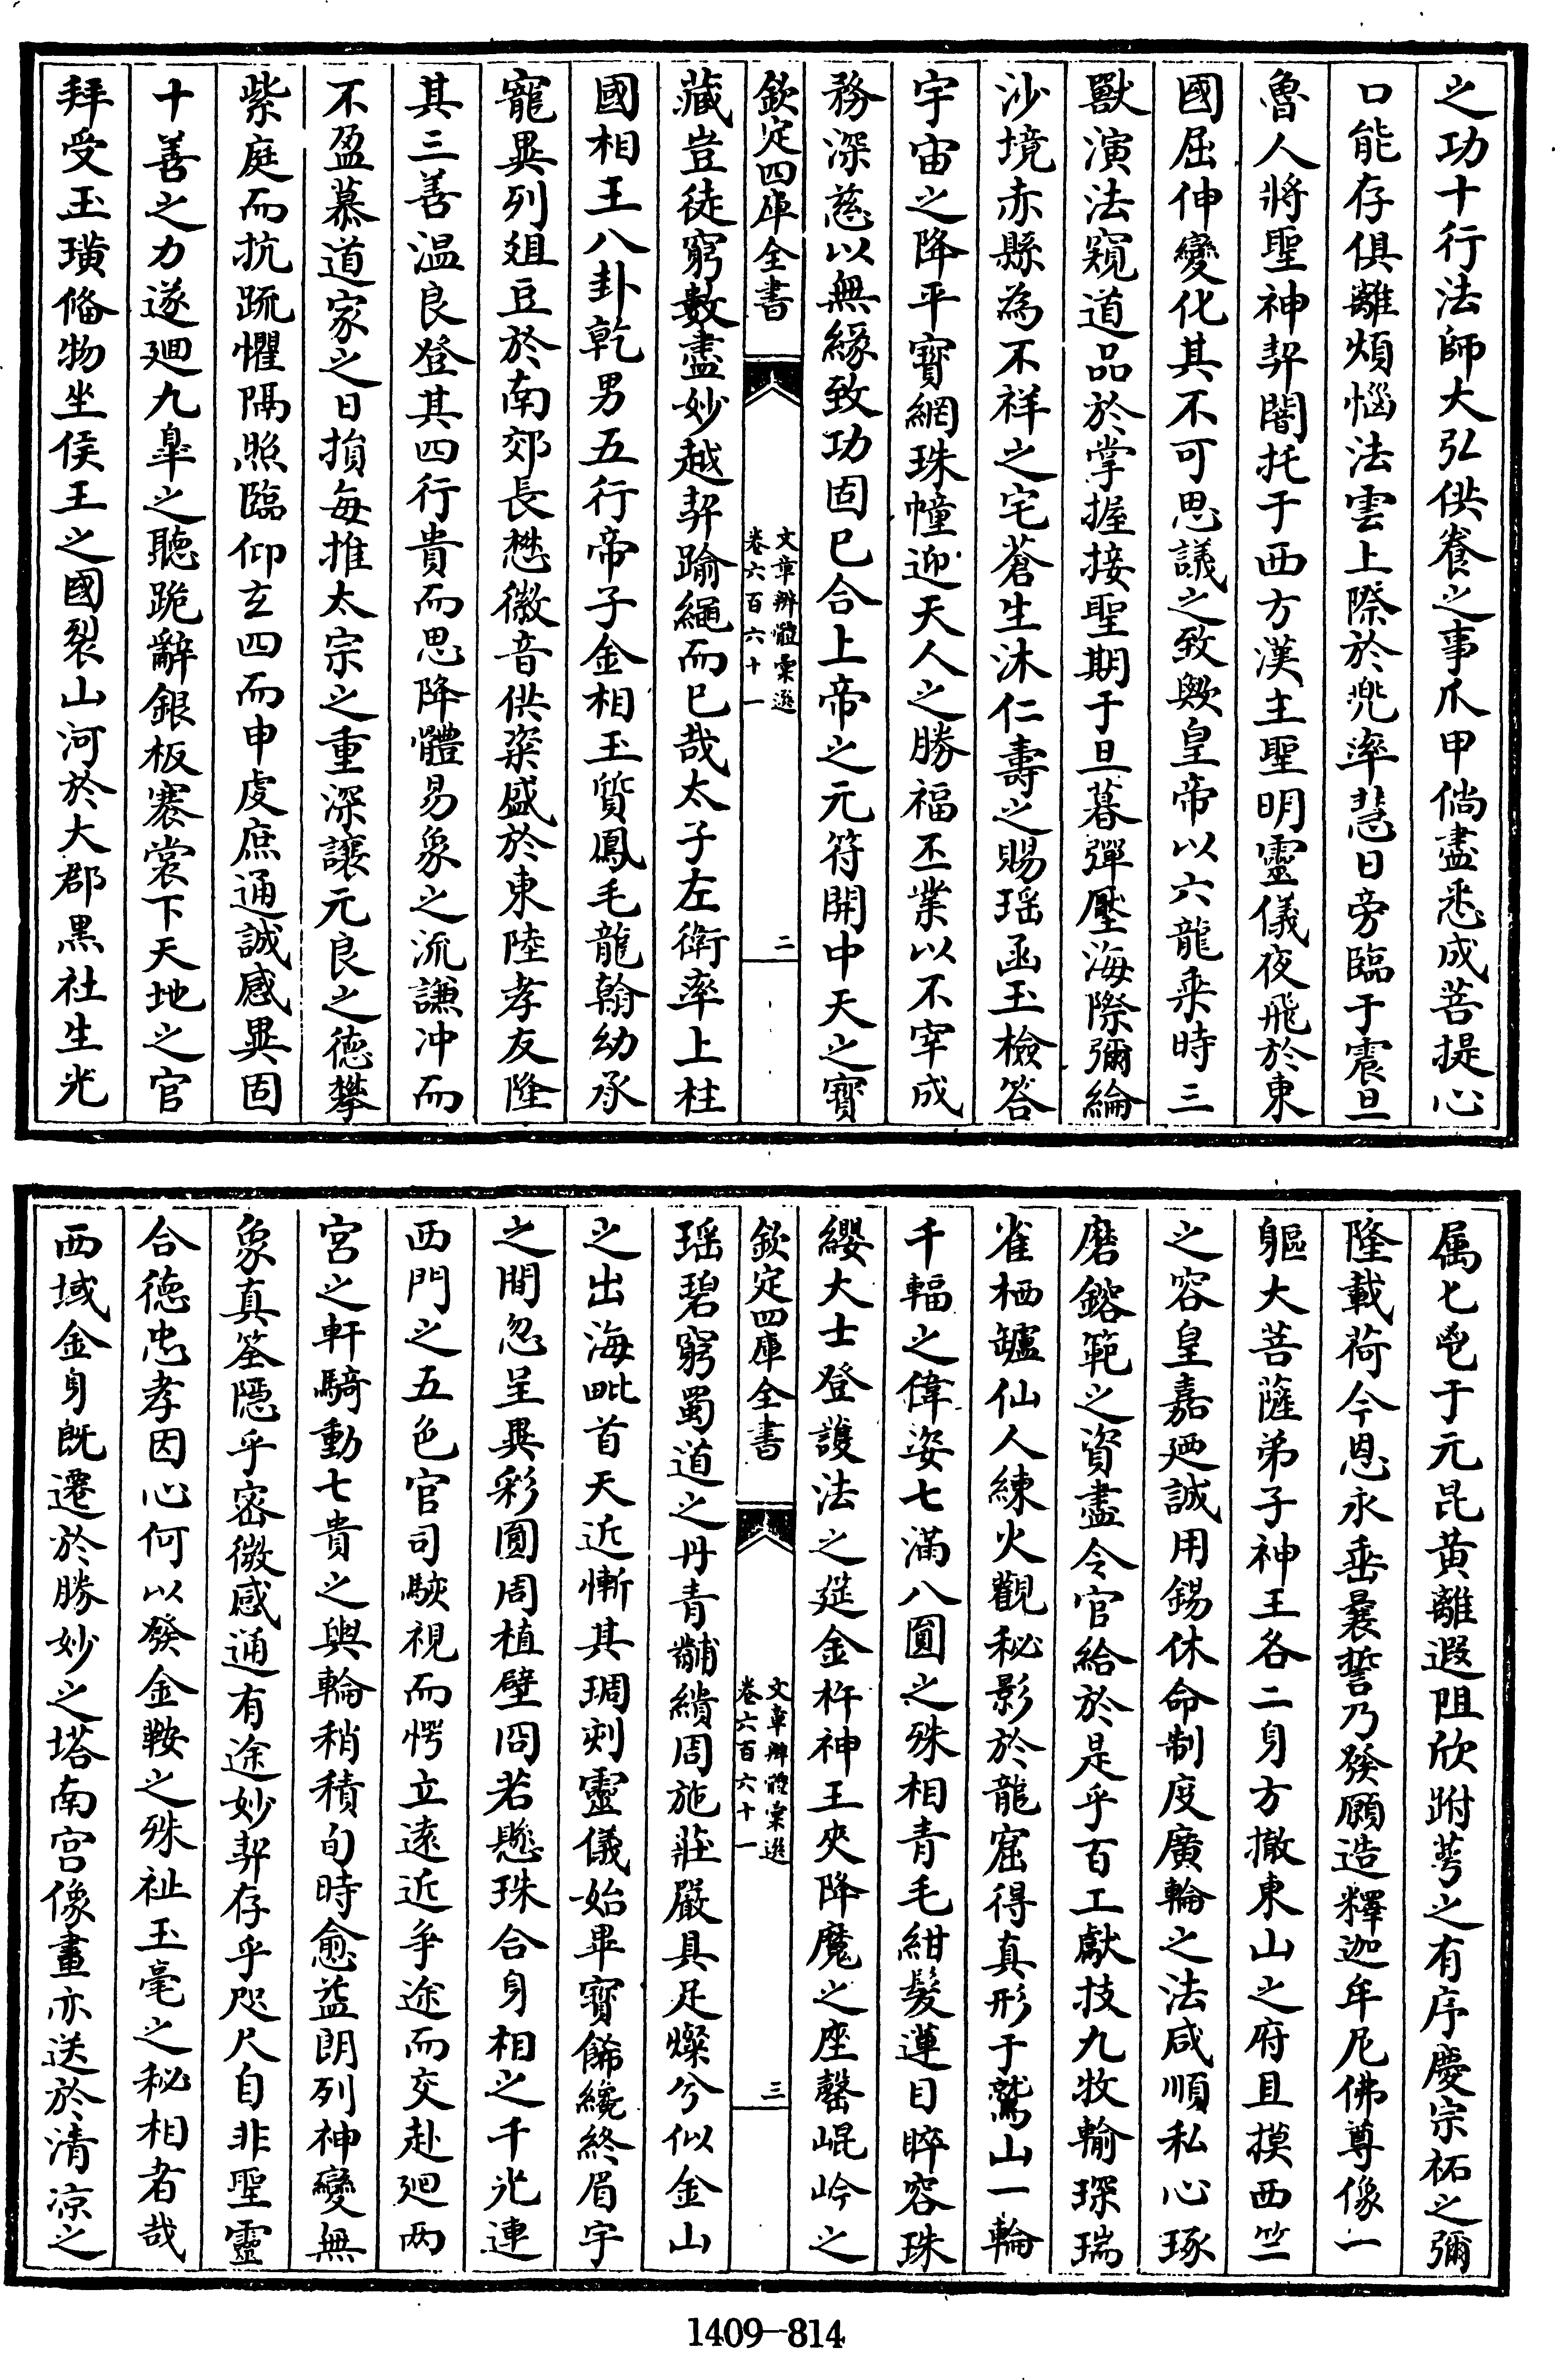 之功十行法師大弘供養之事爪甲倘盡悉成菩提心
口能存俱離煩惱法雲上際於兜率慧日旁臨于震旦
魯人將聖神契闇托于西方漢主聖明靈儀夜飛於東
國屈伸變化其不可思議之致歟皇帝以六龍乘時三
獸演法窺道品於掌握接聖期于旦暮彈壓海際彌綸
沙境赤縣為不祥之宅蒼生沐仁壽之賜瑶函玉檢答
宇宙之降平寳網珠幢迎天人之勝福丕業以不宰成
務深慈以無緣致功固已合上帝之元符開中天之寳
欽定四庫全書
文章辨體彙選
卷六百六十一
二
藏豈徒窮數盡妙越契踰繩而已哉太子左衛率上柱
國相王八卦乾男五行帝子金相玉質鳳毛龍翰幼承
寵異列爼豆於南郊長懋徽音供粢盛於東陸孝友隆
其三善温良登其四行貴而思降體易象之流謙冲而
不盈慕道家之日損每推太宗之重深讓元良之德攀
紫庭而抗疏懼隔照臨仰玄四而申虔庶通誠感異固
十善之力遂廻九臯之聽跪辭銀板褰裳下天地之官
拜受玉璜備物坐侯王之國裂山河於大郡黒社生光
属七鬯于元昆黄離遐阻欣跗萼之有序慶宗祏之彌
隆載荷今恩永垂曩誓乃發願造釋迦牟尼佛尊像一
軀大菩薩弟子神王各二身方撤東山之府且摸西竺
之容皇嘉廼誠用錫休命制度廣輪之法咸順私心琢
磨鎔範之資盡令官給於是乎百工獻技九牧輸琛瑞
雀栖罏仙人練火觀秘影於龍窟得真形于鷲山一輪
千輻之偉姿七滿八圓之殊相青毛紺髮蓮目睟容珠
纓大士登護法之筵金杵神王夾降魔之座罄崐岭之
欽定四庫全書
文章辨體彙選
卷六百六十一
三
瑶碧窮蜀道之丹青黼繢周施莊嚴具足燦兮似金山
之出海毗首天近慚其琱刻靈儀始畢寳餙纔終眉宇
之間忽呈異彩圓周植壁冏若懸珠合身相之千光連
西門之五色官司駭視而愕立遠近爭途而交赴廻兩
宮之軒騎動七貴之輿輪稍積旬時愈益朗列神變無
象真筌隱乎密微感通有途妙契存乎咫尺自非聖靈
合德忠孝因心何以發金鞍之殊祉玉毫之秘相者哉
西域金身既遷於勝妙之塔南宫像畫亦送於清凉之
1409-814